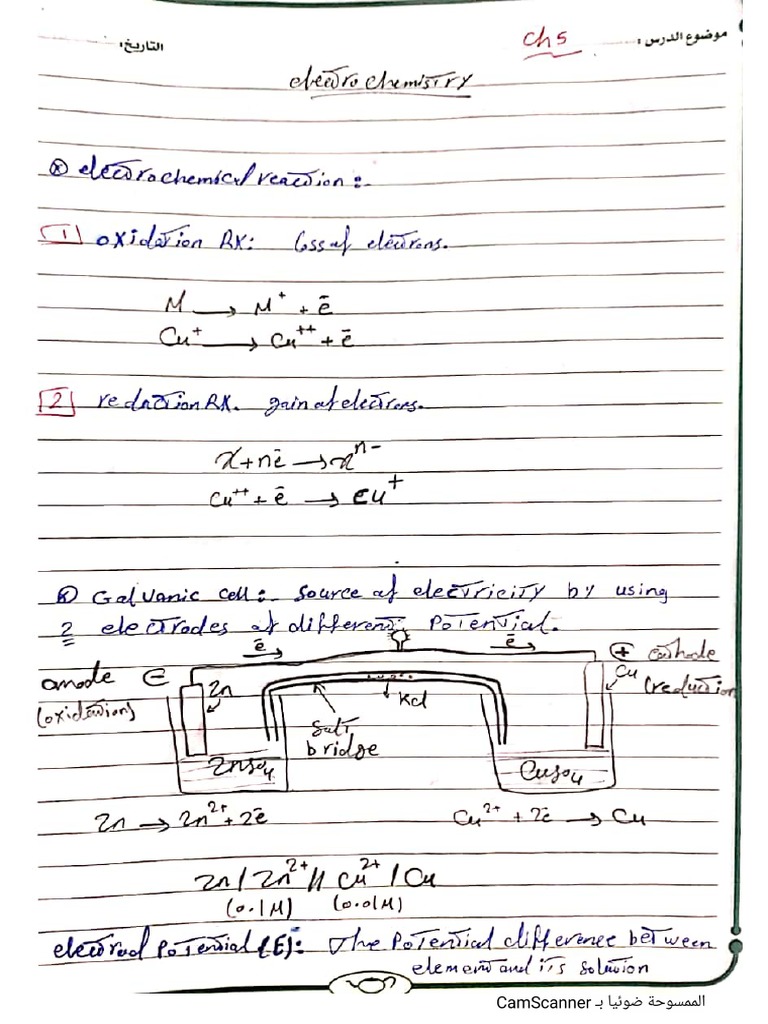 موضوع الدرس : Ch 5 التاريخ:
electrochemistry
⊗ electrochemical reaction :-
1 oxidation RX: loss of electrons.
M → M⁺ + ē
Cu⁺ → Cu⁺⁺ + ē
2 reduction RX. gain of electrons.
x + nē → xⁿ⁻
Cu⁺⁺ + ē → Cu⁺
⊗ Galvanic cell :- Source of electricity by using
2 electrodes of different Potential.
ē → ē →
anode ⊖ Zn ⊕ cathode
(oxidation) Cu (reduction
KCl
Salt
bridge
ZnSO₄ CuSO₄
Zn → Zn²⁺ + 2ē Cu²⁺ + 2ē → Cu
Zn / Zn²⁺ // Cu²⁺ / Cu
(0.1M) (0.01M)
electrod Potential (E): The Potential difference between
element and its solution
الممسوحة ضوئيا بـ CamScanner